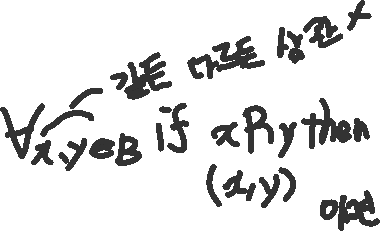 같든 다르든 상관 X
∀x,y∈B if xRy then
(x,y)
이면